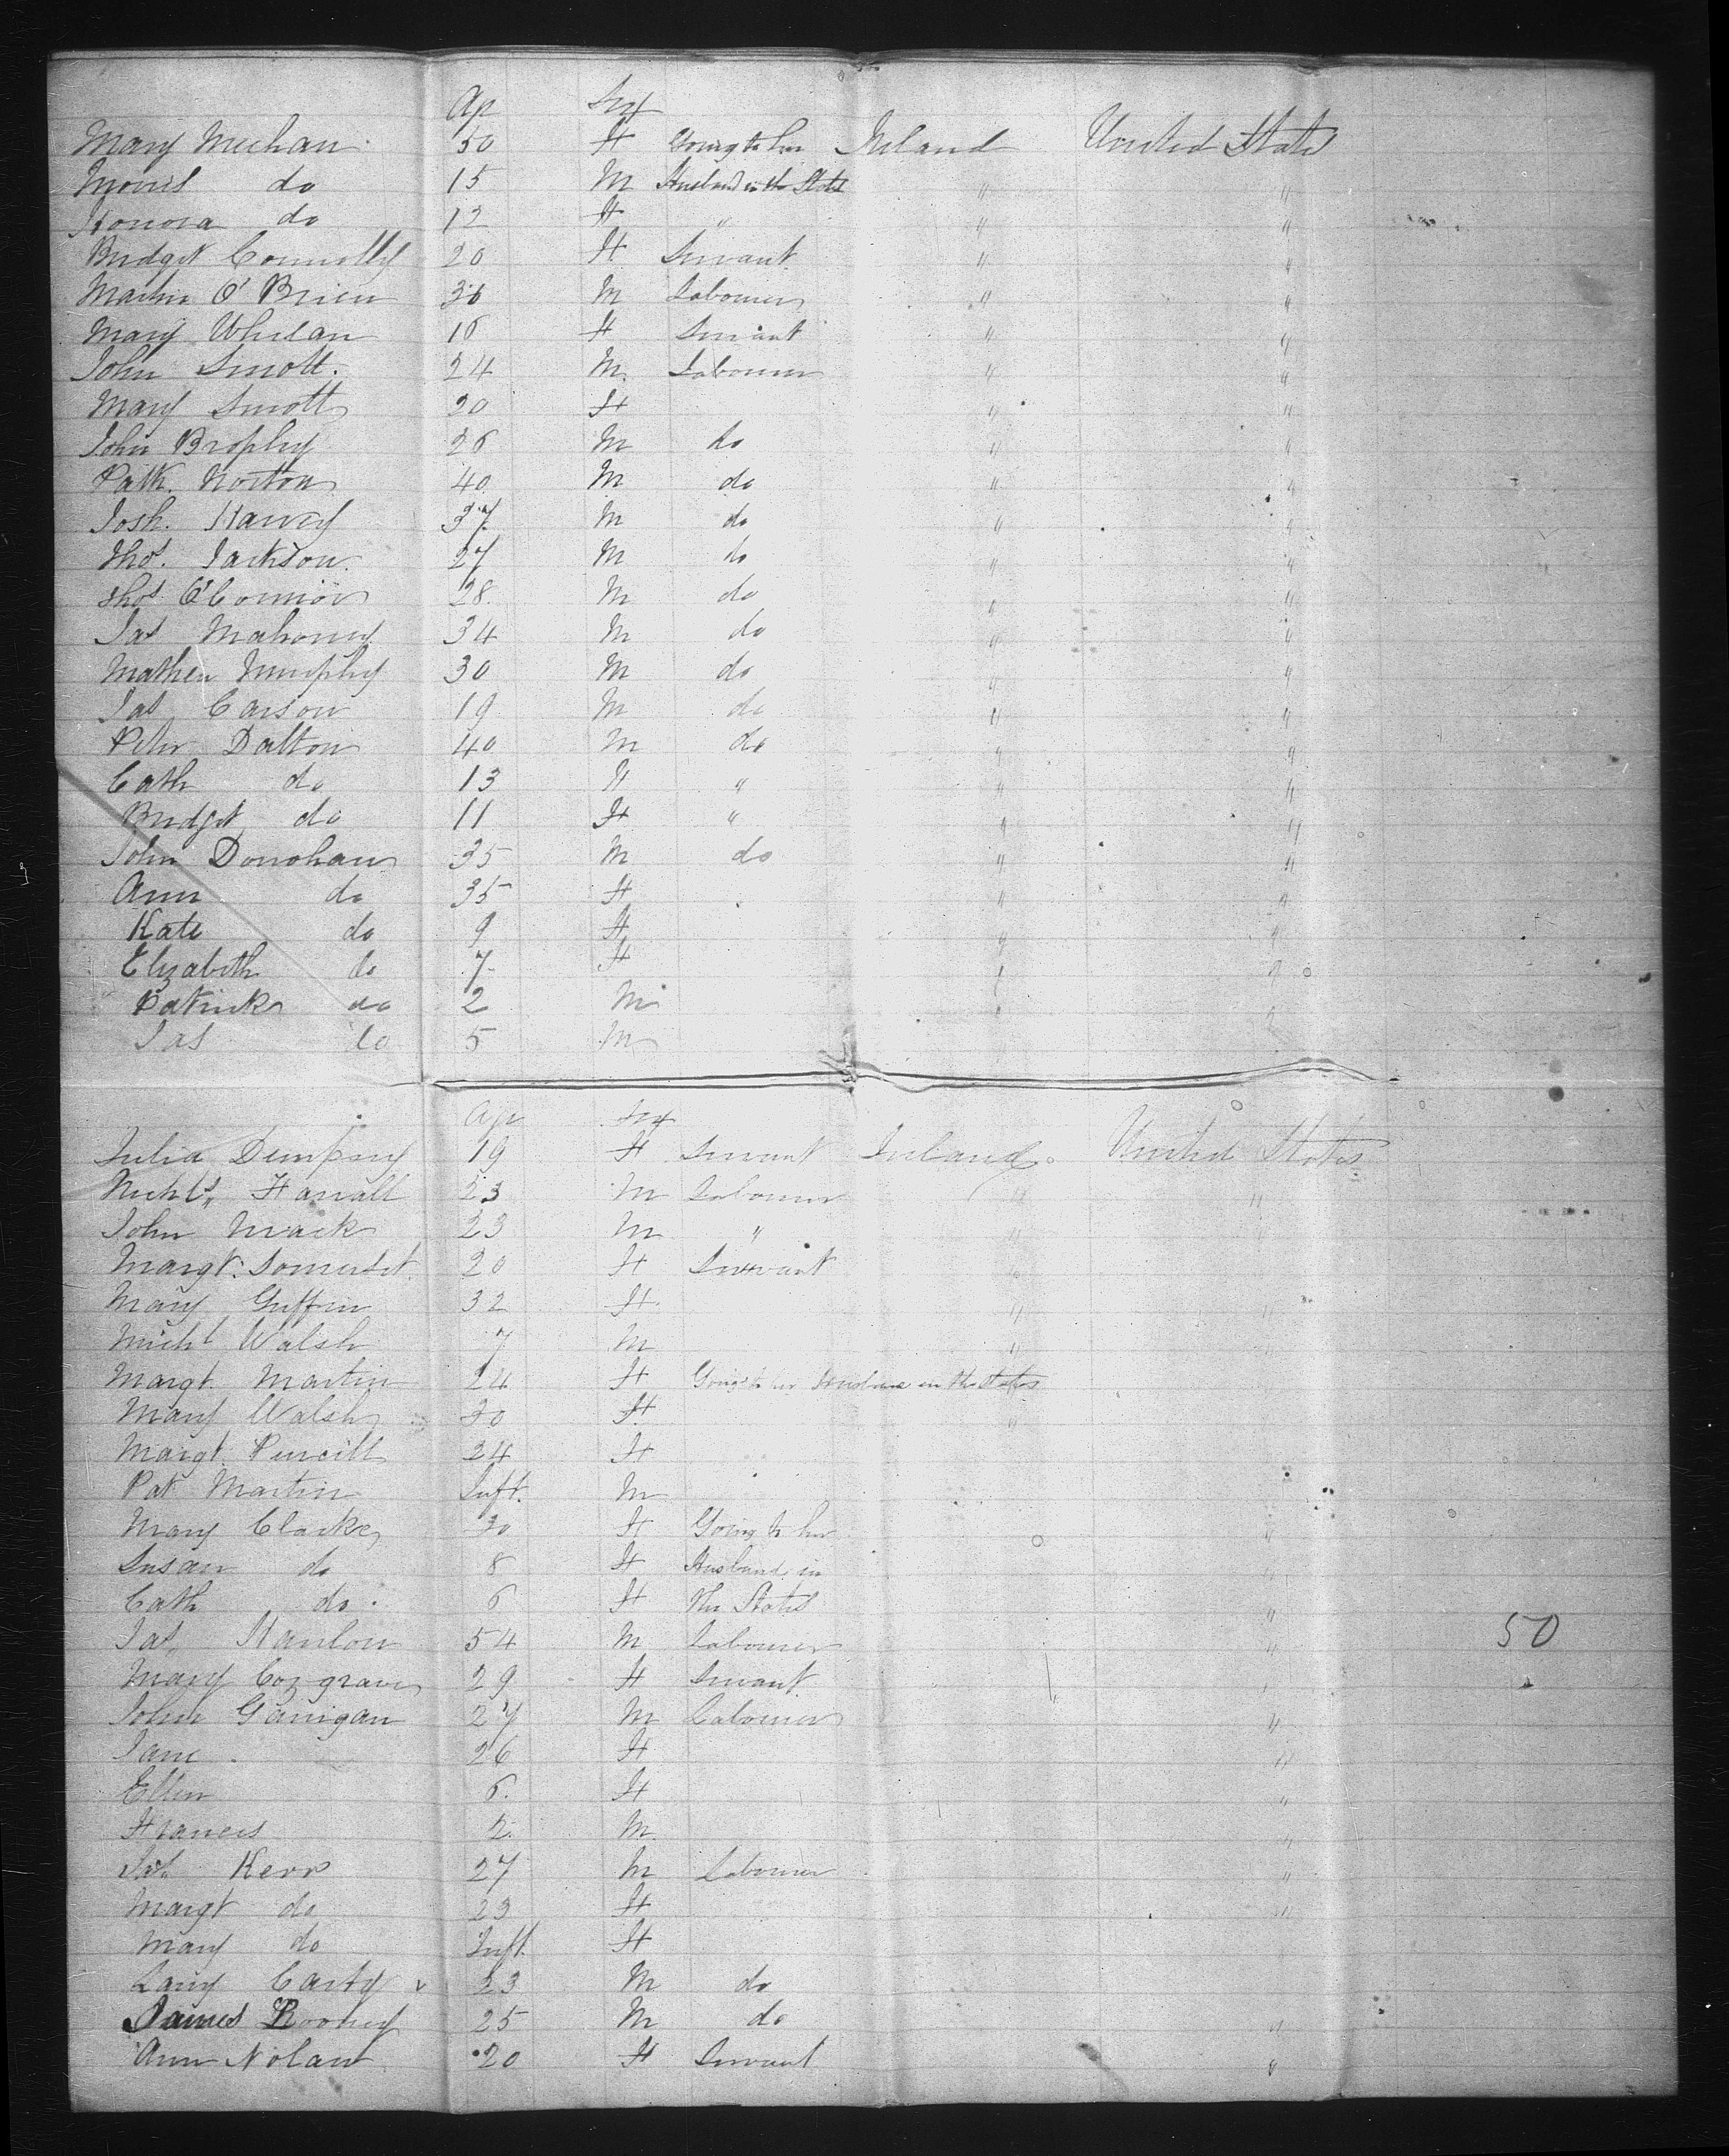 Age Sex
Mary Meehan 50 F Going to her Ireland United States
Morris do 15 M Husband in the States " "
Honora do 12 F " " "
Bridget Connolly 20 F Servant " "
Martin O'Brien 36 M Labourer " "
Mary Whelan 16 F Servant " "
John Smott. 24 M. Labourer " "
Mary Smott 20 F " "
John Brophy 26 M do " "
Patk. Norton 40 M do " "
Josh. Harvey 37 M do " "
Thos. Jackson 27 M do " "
Thos O'Connor 28 M do " "
Jas Mahoney 34 M do " "
Mathew Murphy 30 M do " "
Jas Carson 19 M do " "
Peter Dalton 40 M do " "
Cath do 13 F " " "
Bridget do 11 F " " "
John Donohan 35 M do " "
Ann do 35 F " "
Kate do 9 F " "
Elizabeth do 7 F " "
Patrick do 2 M " "
Jas do 5 M
Age Sex
Julia Dempsey 19 F Servant Ireland United States
Nichls. Farrall 23 M Labourer " "
John Mack 23 M " " "
Margt. Somerset 20 F Servant "
Mary Griffin 32 F " "
Michl Walsh 7 M "
Margt. Martin 24 F Going to her Husband in the States
Mary Walsh 20 F "
Margt. Purcill 24 F
Pat Martin Inft. M
Mary Clarke 30 F Going to her "
Susan do 8 F Husband in "
Cath do 6 F the States "
Jas, Hanlon 54 M Labourer " 50
Mary Cozgrave 29 F Servant "
John Garrigan 27 M Labourer "
Jane 26 F "
Ellen 6. F "
Francis 2 M "
Jas. Kerr 27 M Labourer "
Margt do 23 F "
Mary do Inft. F
Larry Carty 23 M do
James Rooney 25 M do "
Ann Nolan 20 F Servant "